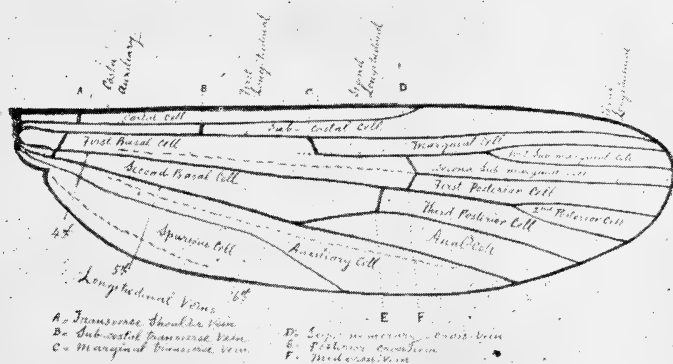 Costa
Auxiliary
First
Longitudinal
Second
Longitudinal
Third
Longitudinal
A B C D
Costal Cell
Sub-Costal Cell
First Basal Cell
Marginal Cell
First Sub marginal Cell
Second Sub marginal Cell
Second Basal Cell
First Posterior Cell
Third Posterior Cell
2nd Posterior Cell
Anal Cell
4th
Spurious Cell
Auxiliary Cell
5th
6th
Longitudinal Veins
E F
A = Transverse Shoulder Vein
B = Sub-costal transverse Vein
C = Marginal transverse Vein
D = Supernumerary cross-vein
E = Posterior cross vein
F = Mid cross vein